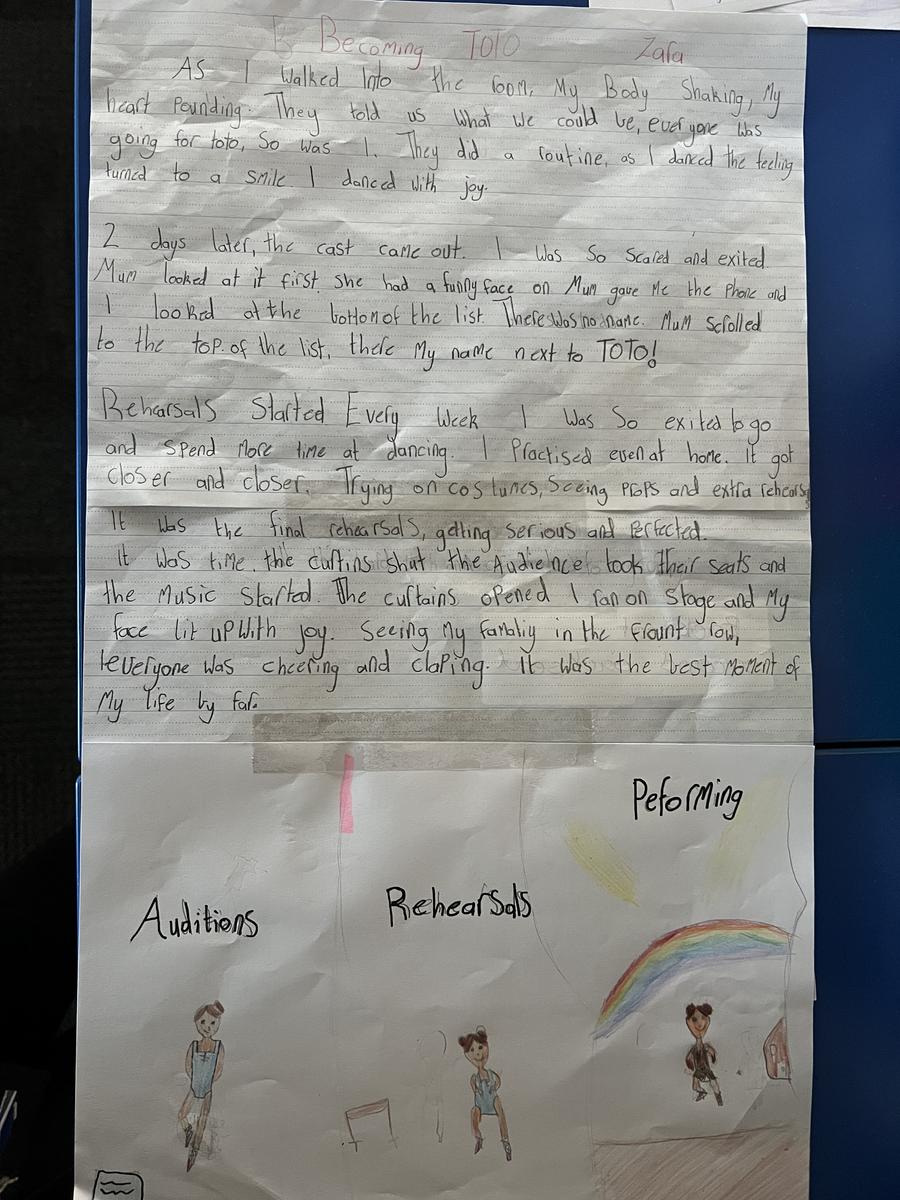 Becoming TOTO Zara
As I Walked Into the room, My Body Shaking, My
heart Pounding. They told us What we could be, everyone was
going for toto, So was I. They did a routine, as I danced the feeling
turned to a smile I danced with joy.
2 days later, the cast came out. I was so scared and exited.
Mum looked at it first, she had a funny face on Mum gave Me the Phone and
I looked at the bottom of the list. There was no name. Mum scrolled
to the top of the list, there My name next to TOTO!
Rehearsals Started Every Week I was So exited to go
and spend More time at dancing. I Practised even at home. It got
closer and closer. Trying on costumes, Seeing Props and extra rehears
It was the final rehearsals, getting serious and Perfected.
It was time, the curtins shut the Audience took their seats and
the Music Started. The curtains opened I ran on Stage and My
face lit up With joy. Seeing My famaliy in the frount row,
everyone was cheering and claping. It was the best Moment of
My life by far.
Peforming
Auditions
Rehearsals